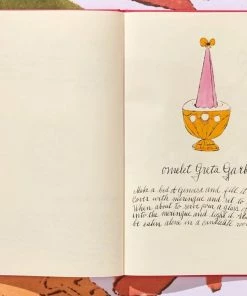 omelet Greta Garb
Make a bed of Genoese and fill it
Cover with meringue and set to
When about to serve pour a glass of
into the meringue and light it. It
be eaten alone in a candlelit room